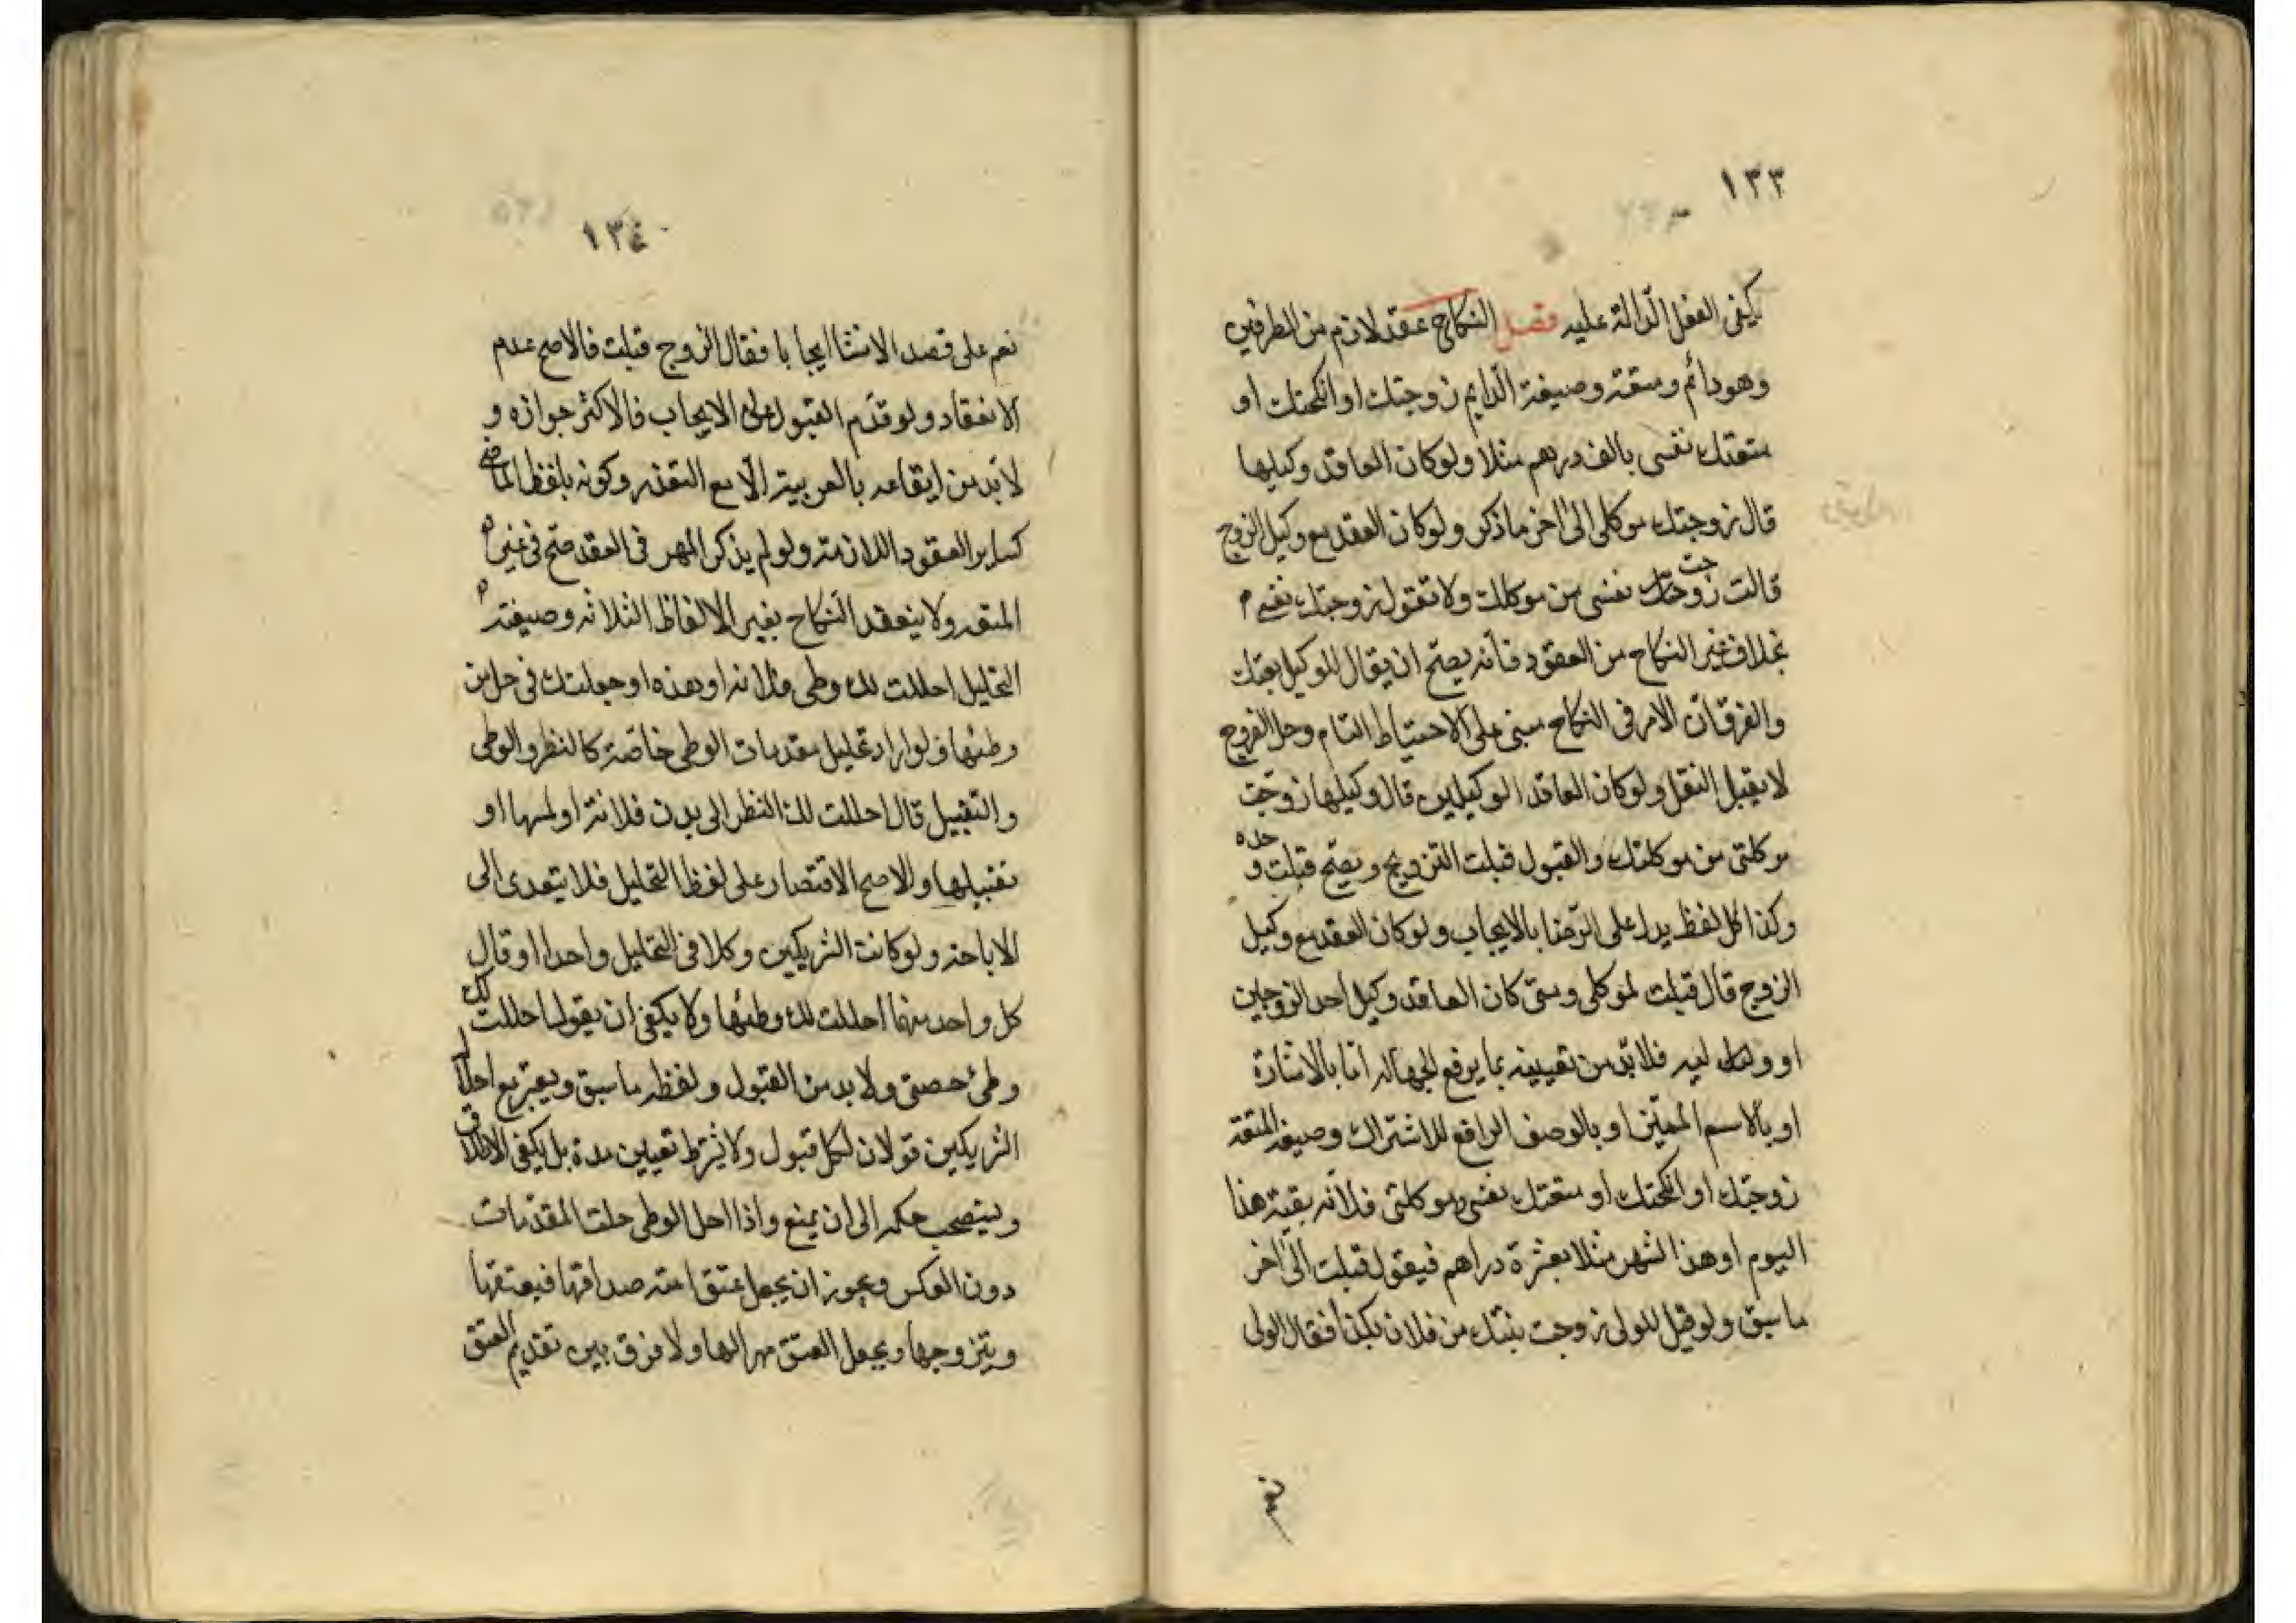 ١٣٣
يكفى الفعل الدّالة عليه فصل النكاح عقد لازم من الطرفين
وهو دائم ومتعة وصيغة الدّايم زوجتك او انكحتك او
متعتك نفسى بالف درهم مثلا ولو كان العاقد وكيلها
قال زوجتك موكلى الى اخر ما ذكر ولو كان العقد مع وكيل الزوج
قالت زوجت نفسى من موكلك ولا تقول زوجتك نفسى
بخلاف غير النكاح من العقود فانه يصح ان يقال للوكيل بعتك
والفرق انّ الامر فى النكاح مبنى على الاحتياط التام وحل الفروج
لا يقبل النقل ولو كان العاقد الوكيلين قال وكيلها زوّجت
موكلتى من موكلك والقبول قبلت التزويج ويصح قبلت وحده
وكذا كل لفظ يدل على الرّضا بالايجاب ولو كان العقد مع وكيل
الزوج قال قبلت لموكلى ومتى كان العاقد وكيل احد الزوجين
او وليه فلا بدّ من تعيينه بما يرفع الجهالة امّا بالاشارة
او بالاسم المعيّن او بالوصف الرافع للاشتراك وصيغة المتعة
زوجتك او انكحتك او متعتك نفسى او موكلتى فلانه بقية هذا
اليوم او هذا الشهر مثلا بعشرة دراهم فيقول قبلت الى اخر
ما سبق ولو قيل للولى زوجت بنتك من فلان بكذا فقال الولى
نعم
١٣٤
نعم على قصد الانشا ايجابا فقال الزوج قبلت فالاصح عدم
الانعقاد ولو قدّم القبول على الايجاب فالاكثر جوازه و
لا بّد من ايقاعه بالعربية الّا مع التعذر وكونه بلفظ الماضى
كساير العقود اللازمة ولو لم يذكر المهر فى العقد صح فى غير
المتعه ولا ينعقد النكاح بغير الالفاظ الثلاثه وصيغة
التحليل احللت لك وطى فلانه او هذه او جعلتك فى حل من
وطئها ولو اراد تحليل مقدمات الوطى خاصة كالنظر والوطى
والتقبيل قال احللت لك النظر الى بدن فلانة او لمسها او
تقبيلها والاصح الاقتصار على لفظ التحليل فلا يتعدى الى
الاباحة ولو كانت الشريكين وكلا فى التحليل واحدا او قال
كل واحد منهما احللت لك وطئها ولا يكفى ان يقول احللت لك
وطئ حصتى ولا بد من القبول ولفظه ما سبق ويعتبر مع احلال
الشريكين قولان لكل قبول ولا يشترط تعيين مدة بل يكفى الاطلاق
ويستصحب حكمه الى ان يمنع واذا احل الوطى حلت المقدّمات
دون العكس ويجوز ان يجعل عتق امته صداقها فيعتقها
ويتزوجها ويجعل العتق مهرا لها ولا فرق بين تقديم العتق